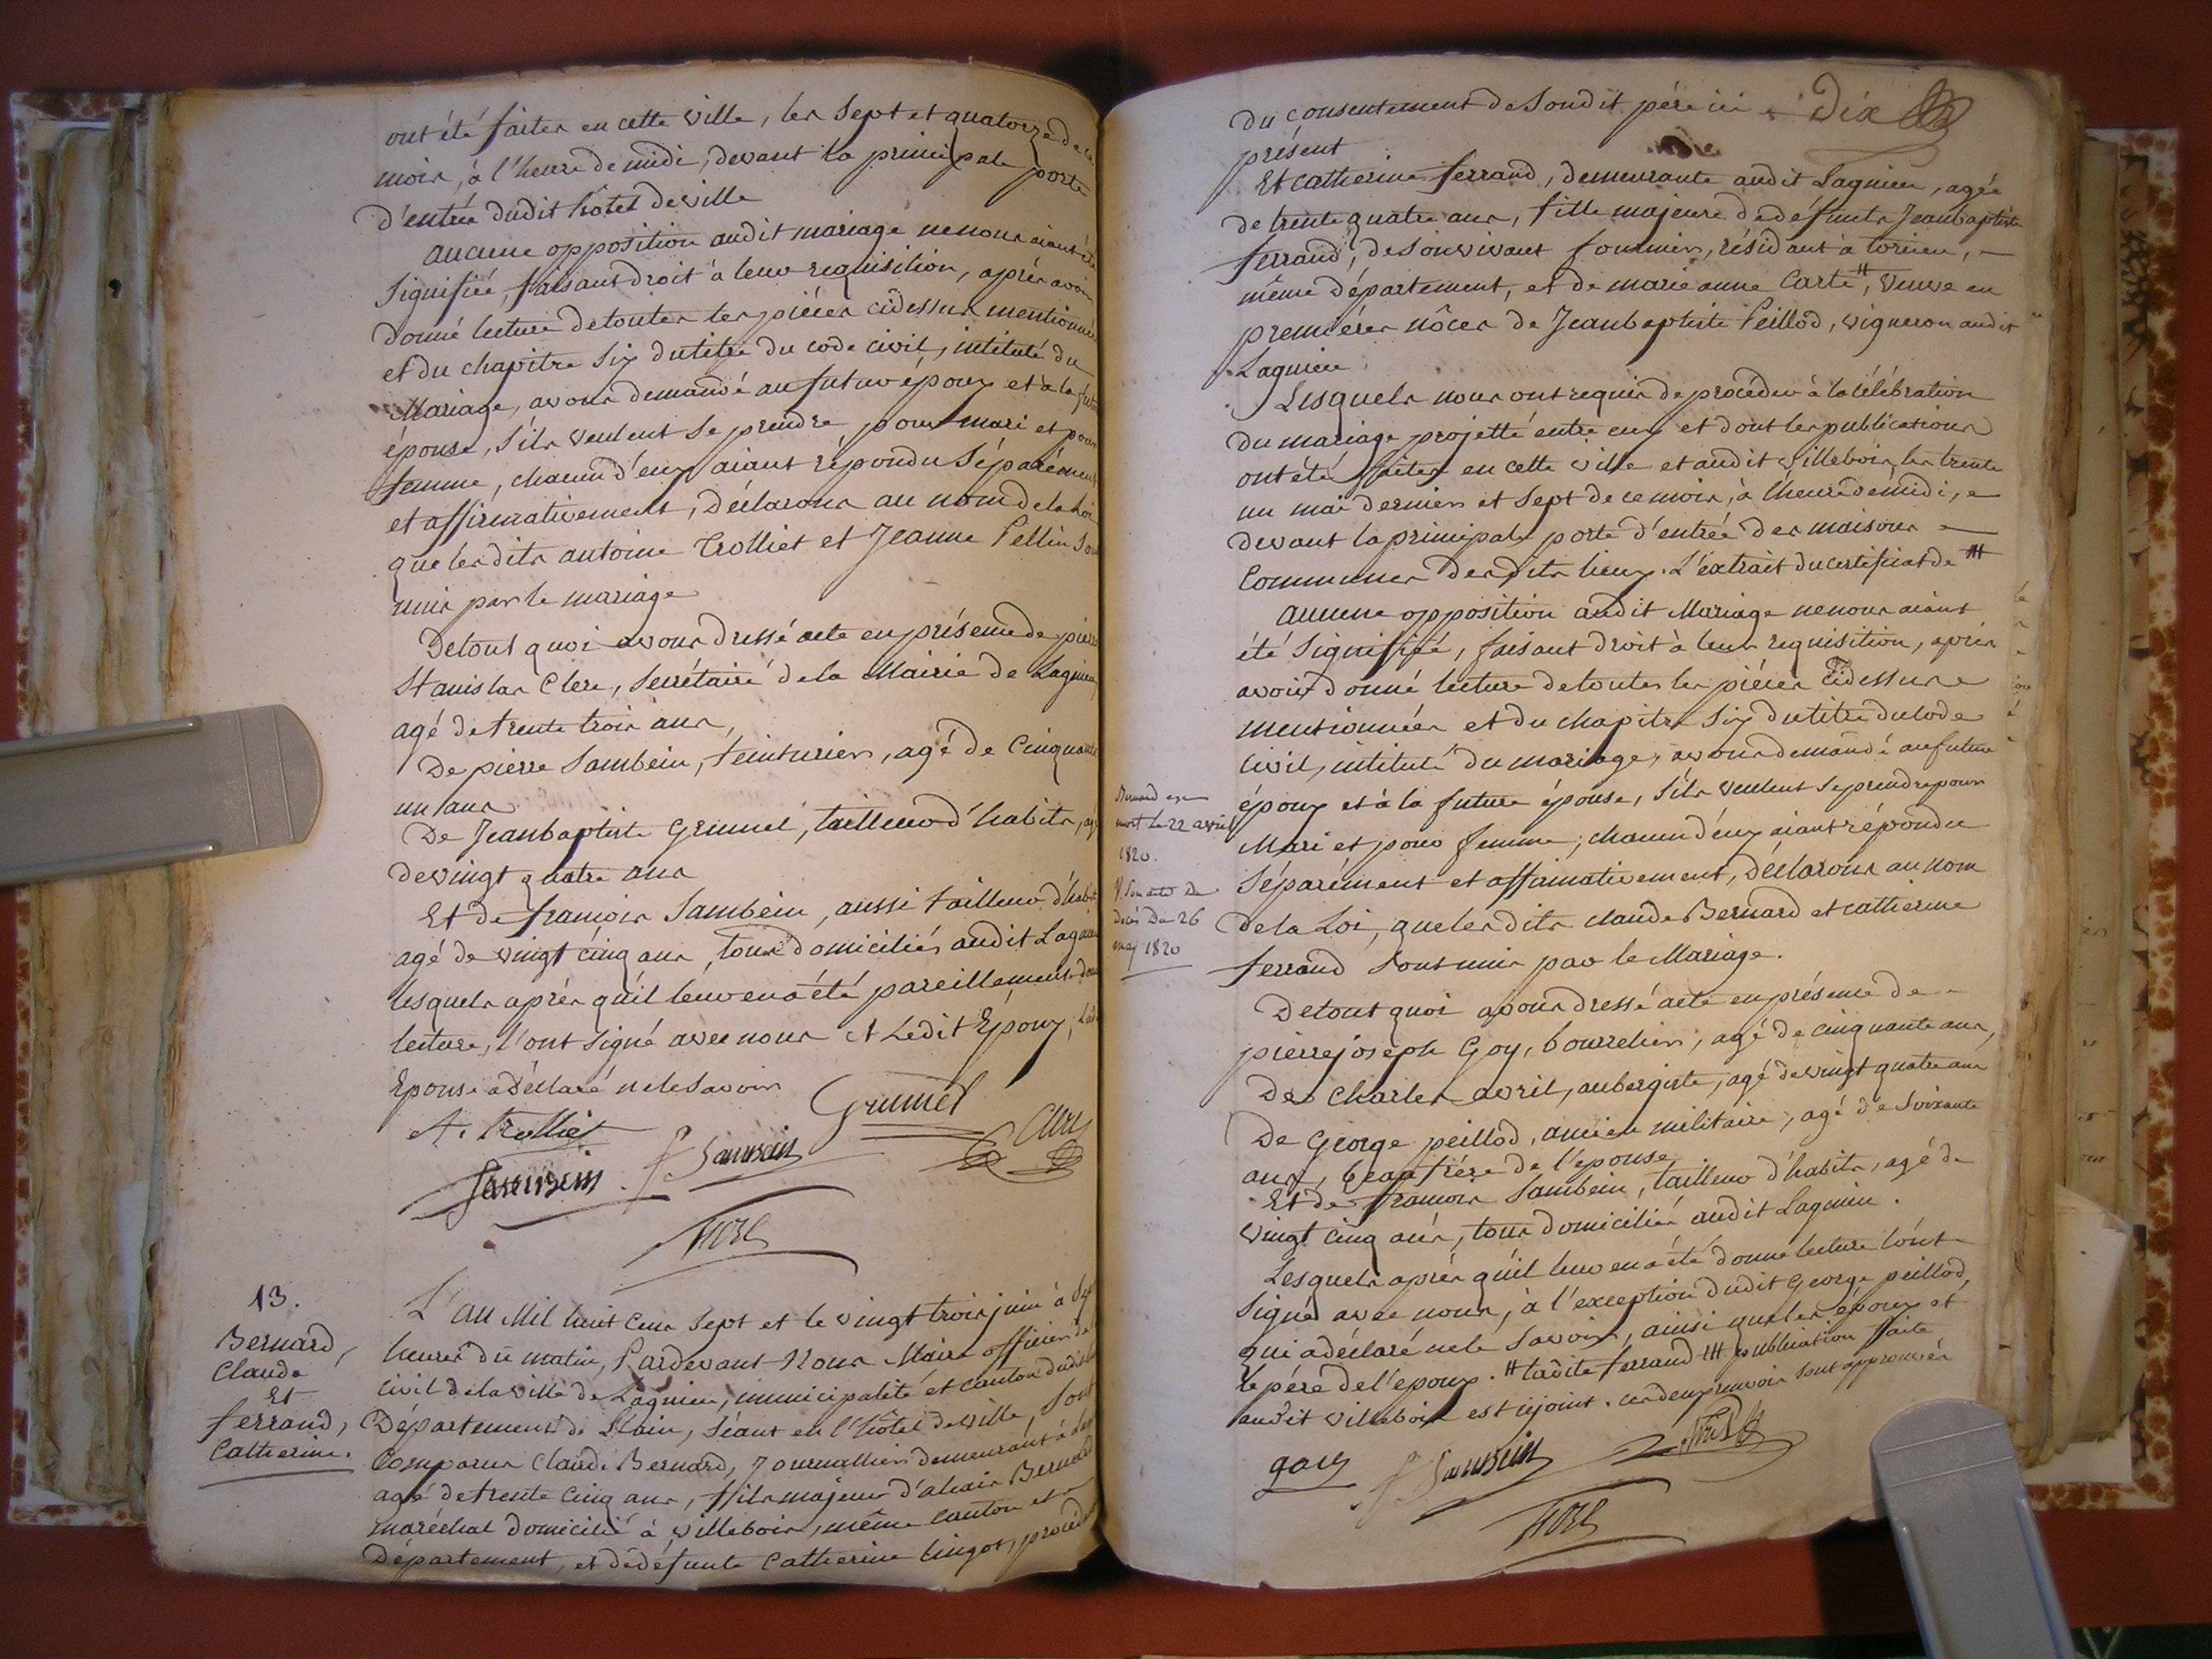 ont été faites en cette ville, les sept et quatorze de ce
mois, à l'heure de midi, devant la principale porte
d'entrée dudit hôtel de ville
aucune opposition audit mariage ne nous aiant été
signifiée, faisant droit à leur requisition, après avoir
donné lecture de toutes les pièces cidessus mentionnées
et du chapitre six du titre du code civil, intitulé du
Mariage, avons demandé au futur époux et à la future
épouse, s'ils veulent se prendre pour mari et pour
femme, chacun d'eux aiant répondu séparément
et affirmativement, déclarons au nom de la loi
que lesdits antoine Trolliet et Jeanne Pellin sont
unis par le mariage
De tout quoi avons dressé acte en présence de pierre
Stanislas Clerc, secrétaire de la Mairie de Lagnieu,
agé de trente trois ans,
De pierre Sambein, teinturier, agé de cinquante
un ans
De Jeanbaptiste Grumel, tailleur d'habits, agé
de vingt quatre ans
Et de françois Sambein, aussi tailleur d'habits
agé de vingt cinq ans, tous domiciliés audit Lagnieu
lesquels après qu'il leur en a été pareillement donné
lecture, l'ont signé avec nous et Ledit Epoux, Ladite
Epouse a déclaré ne le savoir
A. Trolliet
Grumel
Clerc
Sambein
f. Sambein
13.
Bernard,
Claude
Et
ferrand,
Catherine.
L'an Mil huit Cent Sept et le vingt trois juin à sept
heures du matin, Pardevant Nous Maire officier de l'état
civil de la ville de Lagnieu, municipalité et canton dudit lieu
Département de L'ain, séant en l'hôtel de ville, sont
Comparus Claude Bernard, Journallier demeurant à
agé de trente cinq ans, fils majeur d' Bernard
maréchal domicilié à villebois, même canton et
Département, et de défunte Catherine procédant
du consentement de sondit père ici
présent
Dix
Et catherine ferrand, demeurante audit Lagnieu, agée
de trente quatre ans, fille majeure de défunts Jeanbaptiste
ferrand, de son vivant fournier, résidant à torcieu,
même département, et de marie anne Carte #, veuve en
premières nôces de Jeanbaptiste Peillod, vigneron audit
Lagnieu.
Lesquels nous ont requis de procéder à la célébration
du mariage projetté entre eux et dont les publications
ont été faites en cette ville et audit villebois, les trente
un mai dernier et sept de ce mois, à l'heure de midi,
devant la principale porte d'entrée des maisons
Communes desdits lieux. L'extrait du certificat de ##
aucune opposition audit Mariage ne nous aiant
été signifiée, faisant droit à leur requisition, après
avoir donné lecture de toutes les pièces cidessus
mentionnées et du chapitre six du titre du Code
Civil, intitulé du mariage, avons demandé au futur
époux et à la future épouse, s'ils veulent se prendre pour
Mari et pour femme; chacun d'eux aiant répondu
séparément et affirmativement, déclarons au nom
de la Loi, que lesdits claude Bernard et catherine
ferrand sont unis par le Mariage.
De tout quoi avons dressé acte en présence de
pierre joseph Goy, bourrelier, agé de cinquante ans,
De Charles avril, aubergiste, agé de vingt quatre ans
De George peillod, ancien militaire, agé de soixante
ans, beau frère de l'epouse
Et de françois Sambein, tailleur d'habits, agé de
vingt cinq ans, tous domiciliés audit Lagnieu.
Lesquels après qu'il leur en a été donné lecture l'ont
signé avec nous, à l'exception dudit George peillod,
qui a déclaré ne le savoir, ainsi que les époux et
le père de l'epoux. # ladite ferrand ## publication faite
audit villebois est cijoint. ces deux renvois sont approuvés
goy
f. Sambein
Bernard est
mort le 22 avril
1820.
V. son acte de
décès du 26
may 1820